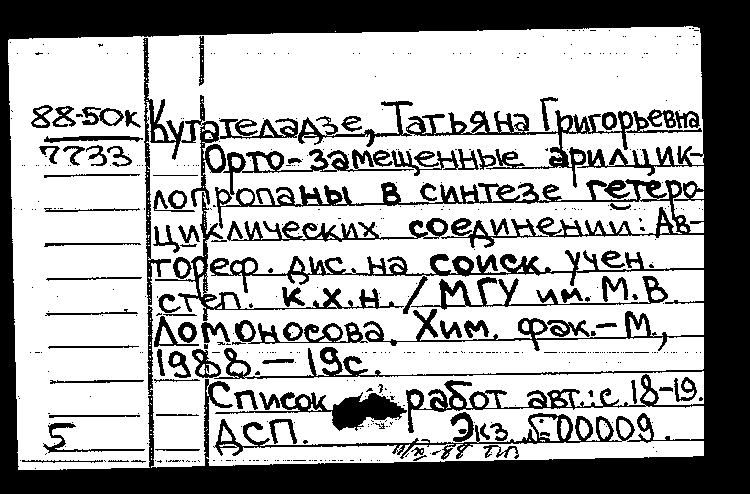 88-50к
7733
Кутателадзе, Татьяна Григорьевна
Орто-замещенные арилцик-
лопропаны в синтезе гетеро-
циклических соединений: Ав-
тореф. дис. на соиск. учен.
степ. к.х.н. / МГУ им. М.В.
Ломоносова. Хим. фак. – М.,
1988. – 19с.
Список работ авт.: с. 18-19.
5
ДСП. Экз. № 00009.